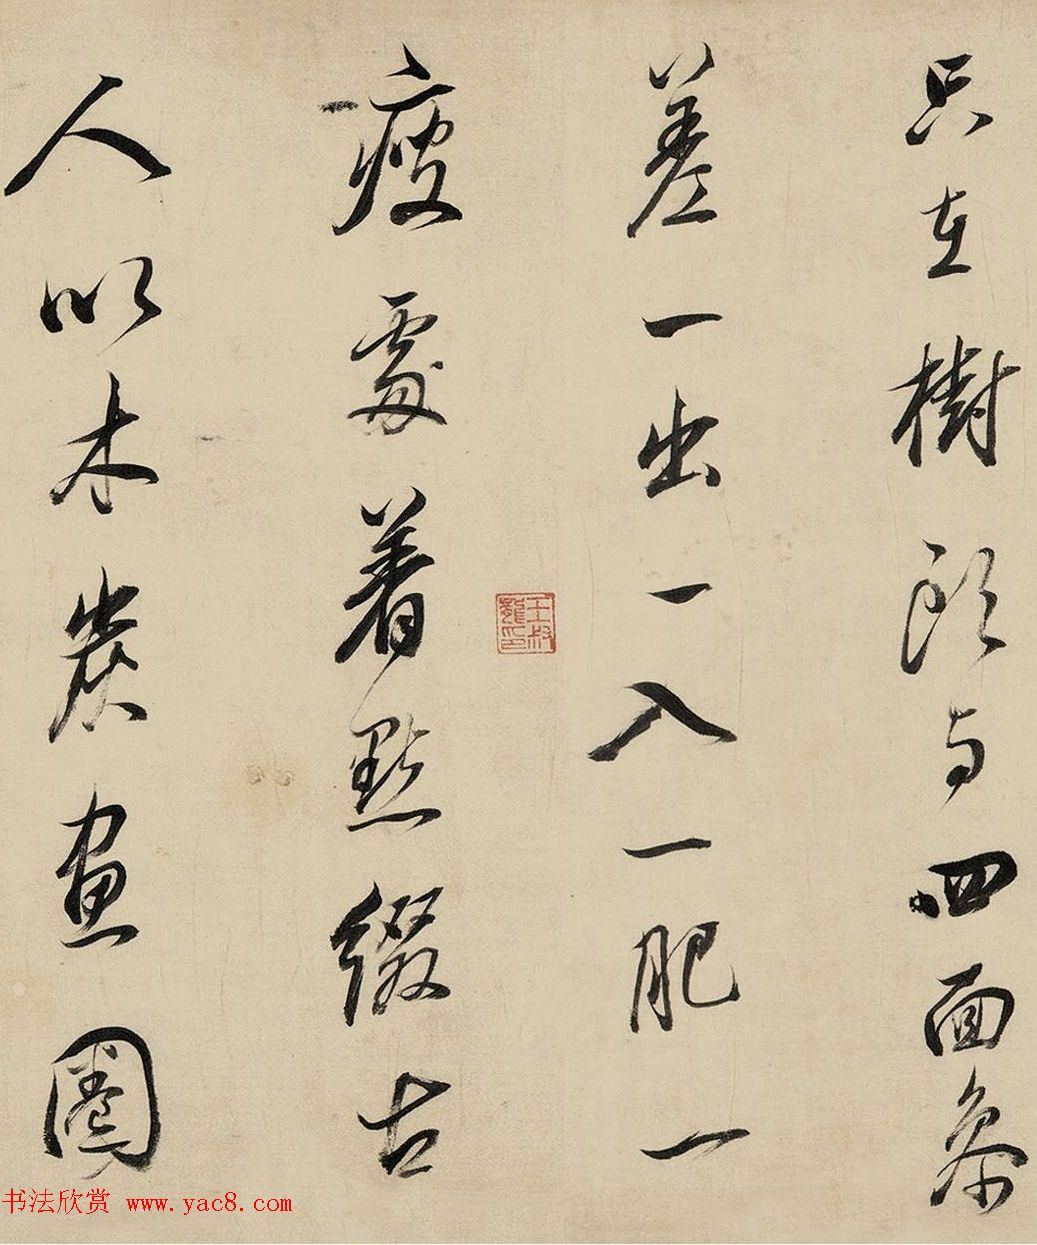 只在樹頭与四面參
差一出一入一肥一
瘦處著點綴古
人以木炭畫圈
王叔龍印
书法欣赏 www.yac8.com